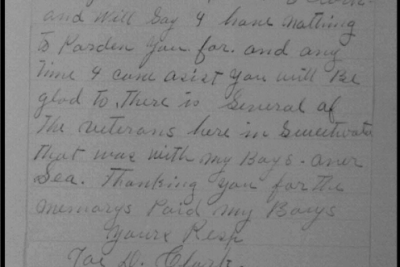 and Will Say I have nothing
to Parden You for. and any
time I can asist You will Be
glad to, there is Several of
the veterans here in Sweetwater
that was with my Boys. over
Sea. Thanking you for the
memorys Paid my Boys
Yours Resp
Joe D. Clark.